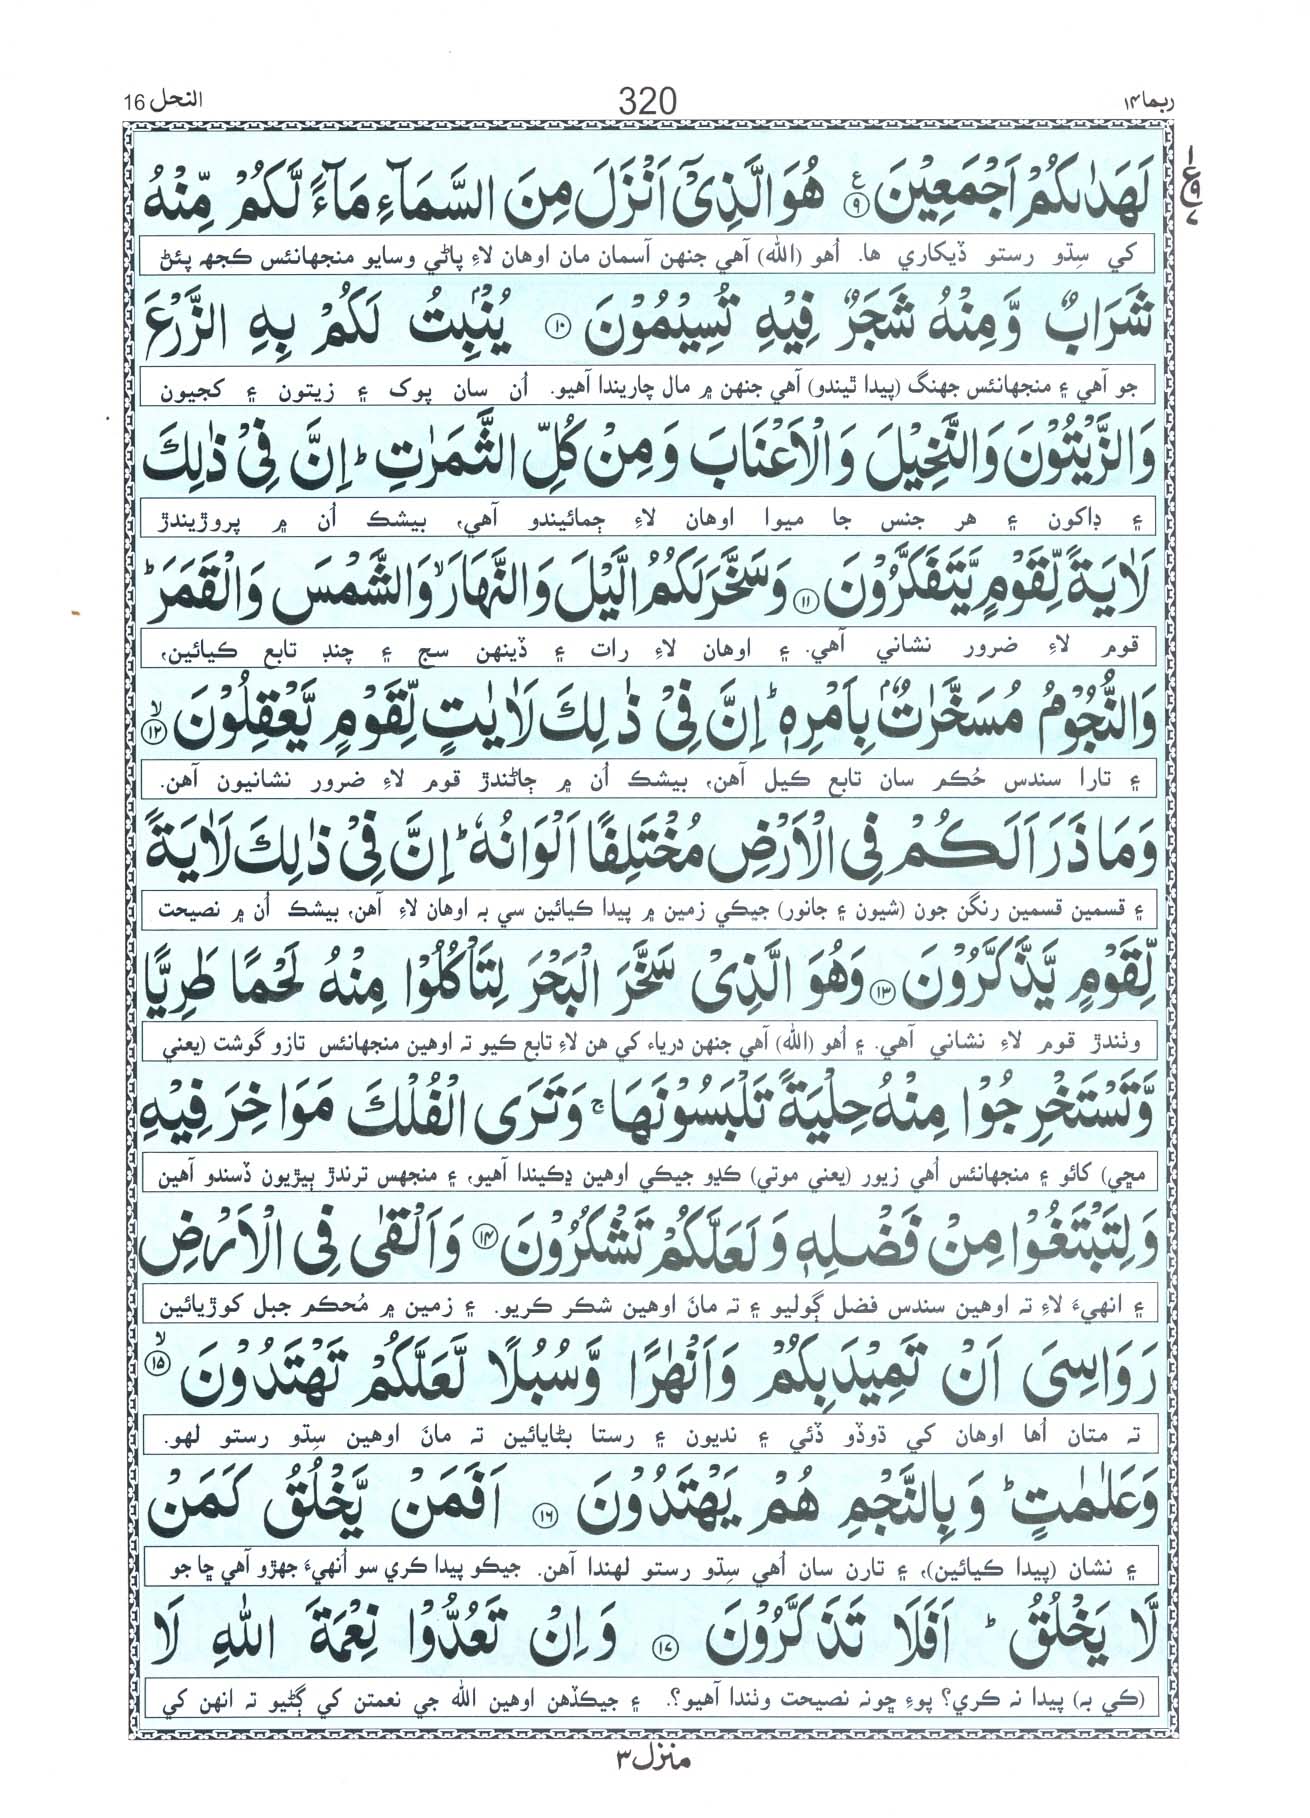 ربما ۱۴
320
النحل 16
لَهَدٰىكُمْ اَجْمَعِيْنَ ۹ هُوَ الَّذِيْٓ اَنْزَلَ مِنَ السَّمَآءِ مَآءً لَّكُمْ مِّنْهُ
کي سِڌو رستو ڏيکاري ها. اُهو (الله) آهي جنهن آسمان مان اوهان لاءِ پاڻي وسايو منجهانئس ڪجهہ پئڻ
شَرَابٌ وَّمِنْهُ شَجَرٌ فِيْهِ تُسِيْمُوْنَ ۱۰ يُنْۢبِتُ لَكُمْ بِهِ الزَّرْعَ
جو آهي ۽ منجهانئس جهنگ (پيدا ٿيندو) آهي جنهن ۾ مال چاريندا آهيو. اُن سان پوک ۽ زيتون ۽ کجيون
وَالزَّيْتُوْنَ وَالنَّخِيْلَ وَالْاَعْنَابَ وَمِنْ كُلِّ الثَّمَرٰتِ ؕ اِنَّ فِيْ ذٰلِكَ
۽ ڊاکون ۽ هر جنس جا ميوا اوهان لاءِ ڄمائيندو آهي، بيشڪ اُن ۾ پروڙيندڙ
لَاٰيَةً لِّقَوْمٍ يَّتَفَكَّرُوْنَ ۱۱ وَسَخَّرَ لَكُمُ الَّيْلَ وَالنَّهَارَ ۙ وَالشَّمْسَ وَالْقَمَرَ ؕ
قوم لاءِ ضرور نشاني آهي. ۽ اوهان لاءِ رات ۽ ڏينهن سج ۽ چنڊ تابع ڪيائين،
وَالنُّجُوْمُ مُسَخَّرٰتٌۢ بِاَمْرِهٖ ؕ اِنَّ فِيْ ذٰلِكَ لَاٰيٰتٍ لِّقَوْمٍ يَّعْقِلُوْنَ ۙ ۱۲
۽ تارا سندس حُڪم سان تابع ڪيل آهن، بيشڪ اُن ۾ ڄاڻندڙ قوم لاءِ ضرور نشانيون آهن.
وَمَا ذَرَاَ لَكُمْ فِي الْاَرْضِ مُخْتَلِفًا اَلْوَانُهٗ ؕ اِنَّ فِيْ ذٰلِكَ لَاٰيَةً
۽ قسمين قسمين رنگن جون (شيون ۽ جانور) جيڪي زمين ۾ پيدا ڪيائين سي بہ اوهان لاءِ آهن، بيشڪ اُن ۾ نصيحت
لِّقَوْمٍ يَّذَّكَّرُوْنَ ۱۳ وَهُوَ الَّذِيْ سَخَّرَ الْبَحْرَ لِتَاْكُلُوْا مِنْهُ لَحْمًا طَرِيًّا
وٺندڙ قوم لاءِ نشاني آهي. ۽ اُهو (الله) آهي جنهن درياء کي هن لاءِ تابع ڪيو تہ اوهين منجهانئس تازو گوشت (يعني
وَّتَسْتَخْرِجُوْا مِنْهُ حِلْيَةً تَلْبَسُوْنَهَا ۚ وَتَرَى الْفُلْكَ مَوَاخِرَ فِيْهِ
مڇي) کائو ۽ منجهانئس اُهي زيور (يعني موتي) ڪڍو جيڪي اوهين ڍڪيندا آهيو، ۽ منجهس ترندڙ ٻيڙيون ڏسندو آهين
وَلِتَبْتَغُوْا مِنْ فَضْلِهٖ وَلَعَلَّكُمْ تَشْكُرُوْنَ ۱۴ وَاَلْقٰى فِي الْاَرْضِ
۽ انهيءَ لاءِ تہ اوهين سندس فضل ڳوليو ۽ تہ مانَ اوهين شڪر ڪريو. ۽ زمين ۾ مُحڪم جبل کوڙيائين
رَوَاسِيَ اَنْ تَمِيْدَ بِكُمْ وَاَنْهٰرًا وَّسُبُلًا لَّعَلَّكُمْ تَهْتَدُوْنَ ۙ ۱۵
تہ متان اُها اوهان کي ڌوڏو ڏئي ۽ نديون ۽ رستا بڻايائين تہ مانَ اوهين سِڌو رستو لهو.
وَعَلٰمٰتٍ ؕ وَبِالنَّجْمِ هُمْ يَهْتَدُوْنَ ۱۶ اَفَمَنْ يَّخْلُقُ كَمَنْ
۽ نشان (پيدا ڪيائين)، ۽ تارن سان اُهي سِڌو رستو لهندا آهن. جيڪو پيدا ڪري سو اُنهيءَ جهڙو آهي ڇا جو
لَّا يَخْلُقُ ؕ اَفَلَا تَذَكَّرُوْنَ ۱۷ وَاِنْ تَعُدُّوْا نِعْمَةَ اللّٰهِ لَا
(ڪي بہ) پيدا نہ ڪري؟ پوءِ ڇونہ نصيحت وٺندا آهيو؟. ۽ جيڪڏهن اوهين الله جي نعمتن کي ڳڻيو تہ انهن کي
منزل ۳